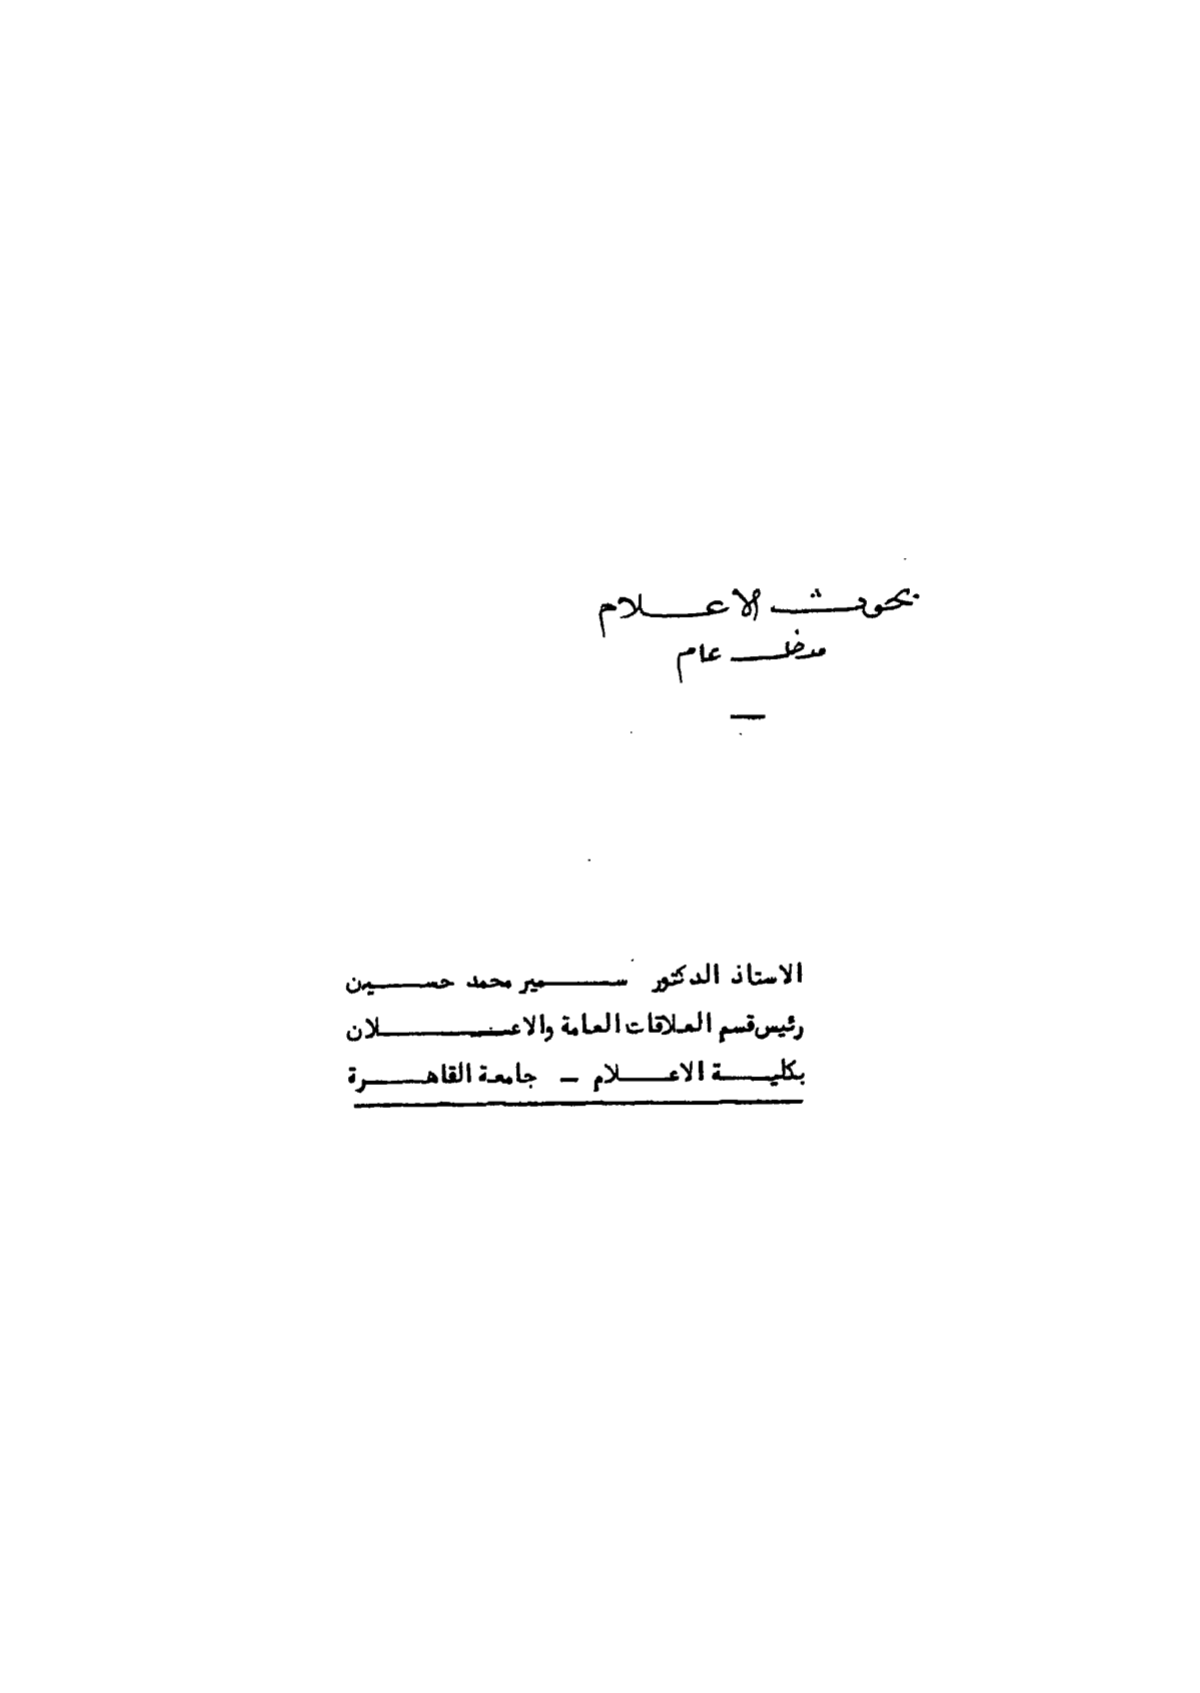 بحوث الاعلام
مدخل عام
الاستاذ الدكتور سمير محمد حسين
رئيس قسم العلاقات العامة والاعلان
بكلية الاعلام – جامعة القاهرة